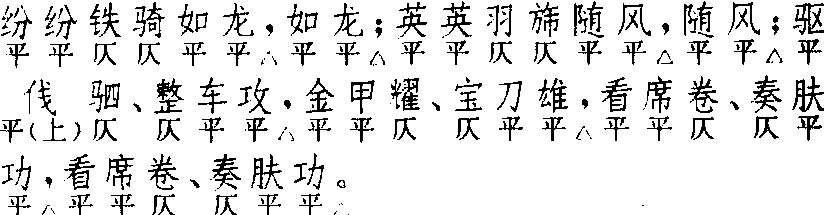 纷纷铁骑如龙,如龙;英英羽旆随风,随风;驱
平平仄仄平平△平平△平平仄仄平平△平平△平
伐驷、整车攻,金甲耀、宝刀雄,看席卷、奏肤
平(上)仄 仄平平△平平仄 仄平平△平平仄 仄平
功,看席卷、奏肤功。
平△平平仄 仄平平△